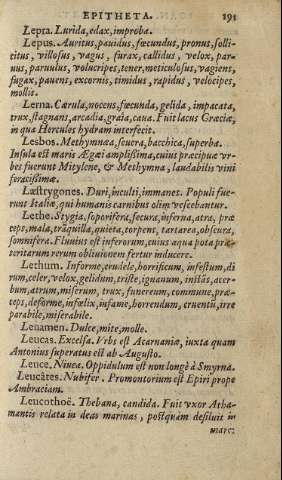 EPITHETA. 191
Lepra. Lurida, edax, improba.
Lepus. Auritus, pauidus, fœcundus, pronus, solli-
citus, villosus, vagus, furax, callidus, velox, par-
uus, paruulus, volucripes, tener, meticulosus, vagiens,
fugax, pauens, excornis, timidus, rapidus, velocipes,
mollis.
Lerna. Cærula, nocens, fœcunda, gelida, impacata,
trux, stagnans, arcadia, graia, caua. Fuit lacus Græciæ,
in qua Hercules hydram interfecit.
Lesbos. Methymnæa, secura, bacchica, superba.
Insula est maris Ægæi amplissima, cuius præcipuæ vr-
bes fuerunt Mitylene, & Methymna, laudabilis vini
feracissimæ.
Læstrygones. Duri, inculti, immanes. Populi fue-
runt Italiæ, qui humanis carnibus olim vescebantur.
Lethe. Stygia, soporifera, secura, inferna, atra, præ
ceps, mala, trãquilla, quieta, torpens, tartarea, obscura,
somnifera. Fluuius est inferorum, cuius aqua pota præ-
teritarum rerum obliuionem fertur inducere.
Lethum. Informe, crudele, horrificum, infestum, di
rum, celer, velox, gelidum, triste, ignauum, instãs, acer-
bum, atrum, miserum, trux, funereum, commune, præ-
ceps, deforme, infœlix, infame, horrendum, cruentũ, irre
parabile, miserabile.
Lenamen. Dulce, mite, molle.
Leucas. Excelsa. Vrbs est Acarnaniæ, iuxta quam
Antonius superatus est ab Augusto.
Leuce. Niuea. Oppidulum est non longè à Smyrna.
Leucâtes. Nubifer. Promontorium est Epiri prope
Ambraciam.
Leucothoë. Thebana, candida. Fuit vxor Atha-
mantis relata in deas marinas, postquàm desiluit in
mare: